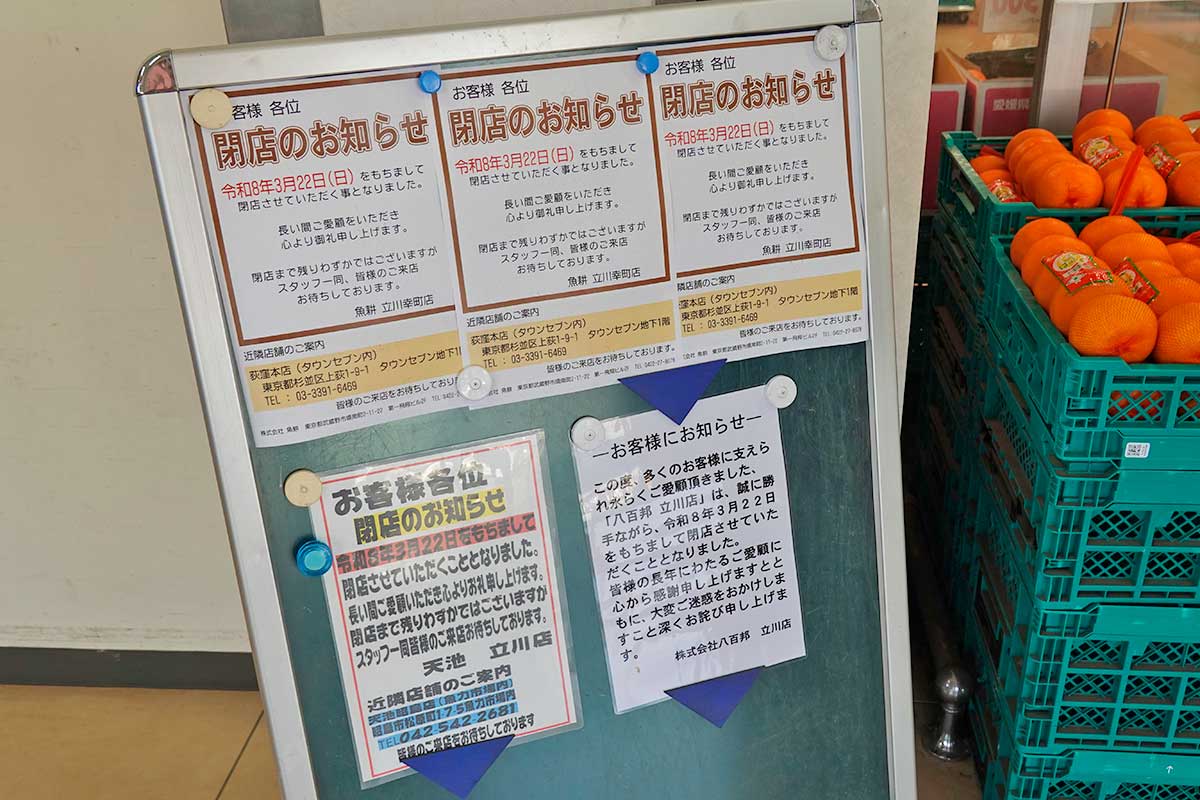 お客様 各位
閉店のお知らせ
令和8年3月22日(日)をもちまして
閉店させていただく事となりました。
長い間ご愛顧をいただき
心より御礼申し上げます。
閉店まで残りわずかではございますが
スタッフ一同、皆様のご来店
お待ちしております。
魚耕 立川幸町店
近隣店舗のご案内
荻窪本店(タウンセブン内)
東京都杉並区上荻1-9-1 タウンセブン地下1階
TEL : 03-3391-6469
皆様のご来店をお待ちしております。
お客様 各位
閉店のお知らせ
令和8年3月22日(日)をもちまして
閉店させていただく事となりました。
長い間ご愛顧をいただき
心より御礼申し上げます。
閉店まで残りわずかではございますが
スタッフ一同、皆様のご来店
お待ちしております。
魚耕 立川幸町店
近隣店舗のご案内
荻窪本店(タウンセブン内)
東京都杉並区上荻1-9-1 タウンセブン地下1階
TEL : 03-3391-6469
皆様のご来店をお待ちしております。
お客様 各位
閉店のお知らせ
令和8年3月22日(日)をもちまして
閉店させていただく事となりました。
長い間ご愛顧をいただき
心より御礼申し上げます。
閉店まで残りわずかではございますが
スタッフ一同、皆様のご来店
お待ちしております。
魚耕 立川幸町店
隣店舗のご案内
窪本店(タウンセブン内)
東京都杉並区上荻1-9-1 タウンセブン地下1階
TEL : 03-3391-6469
皆様のご来店をお待ちしております。
お客様各位
閉店のお知らせ
令和8年3月22日をもちまして
閉店させていただくこととなりました。
長い間ご愛顧いただき心よりお礼申し上げます。
閉店まで残りわずかではございますが
スタッフ一同皆様のご来店お待ちしております。
天池 立川店
近隣店舗のご案内
昭島市松原町
TEL042-542-2681
皆様のご来店をお待ちしております
―お客様にお知らせ―
この度、多くのお客様に支えら
れ永らくご愛顧頂きました、
「八百邦 立川店」は、誠に勝
手ながら、令和8年3月22日
をもちまして閉店させていた
だくこととなりました。
皆様の長年にわたるご愛顧に
心から感謝申し上げますとと
もに、大変ご迷惑をおかけしま
すこと深くお詫び申し上げま
す。
株式会社八百邦 立川店
愛媛県